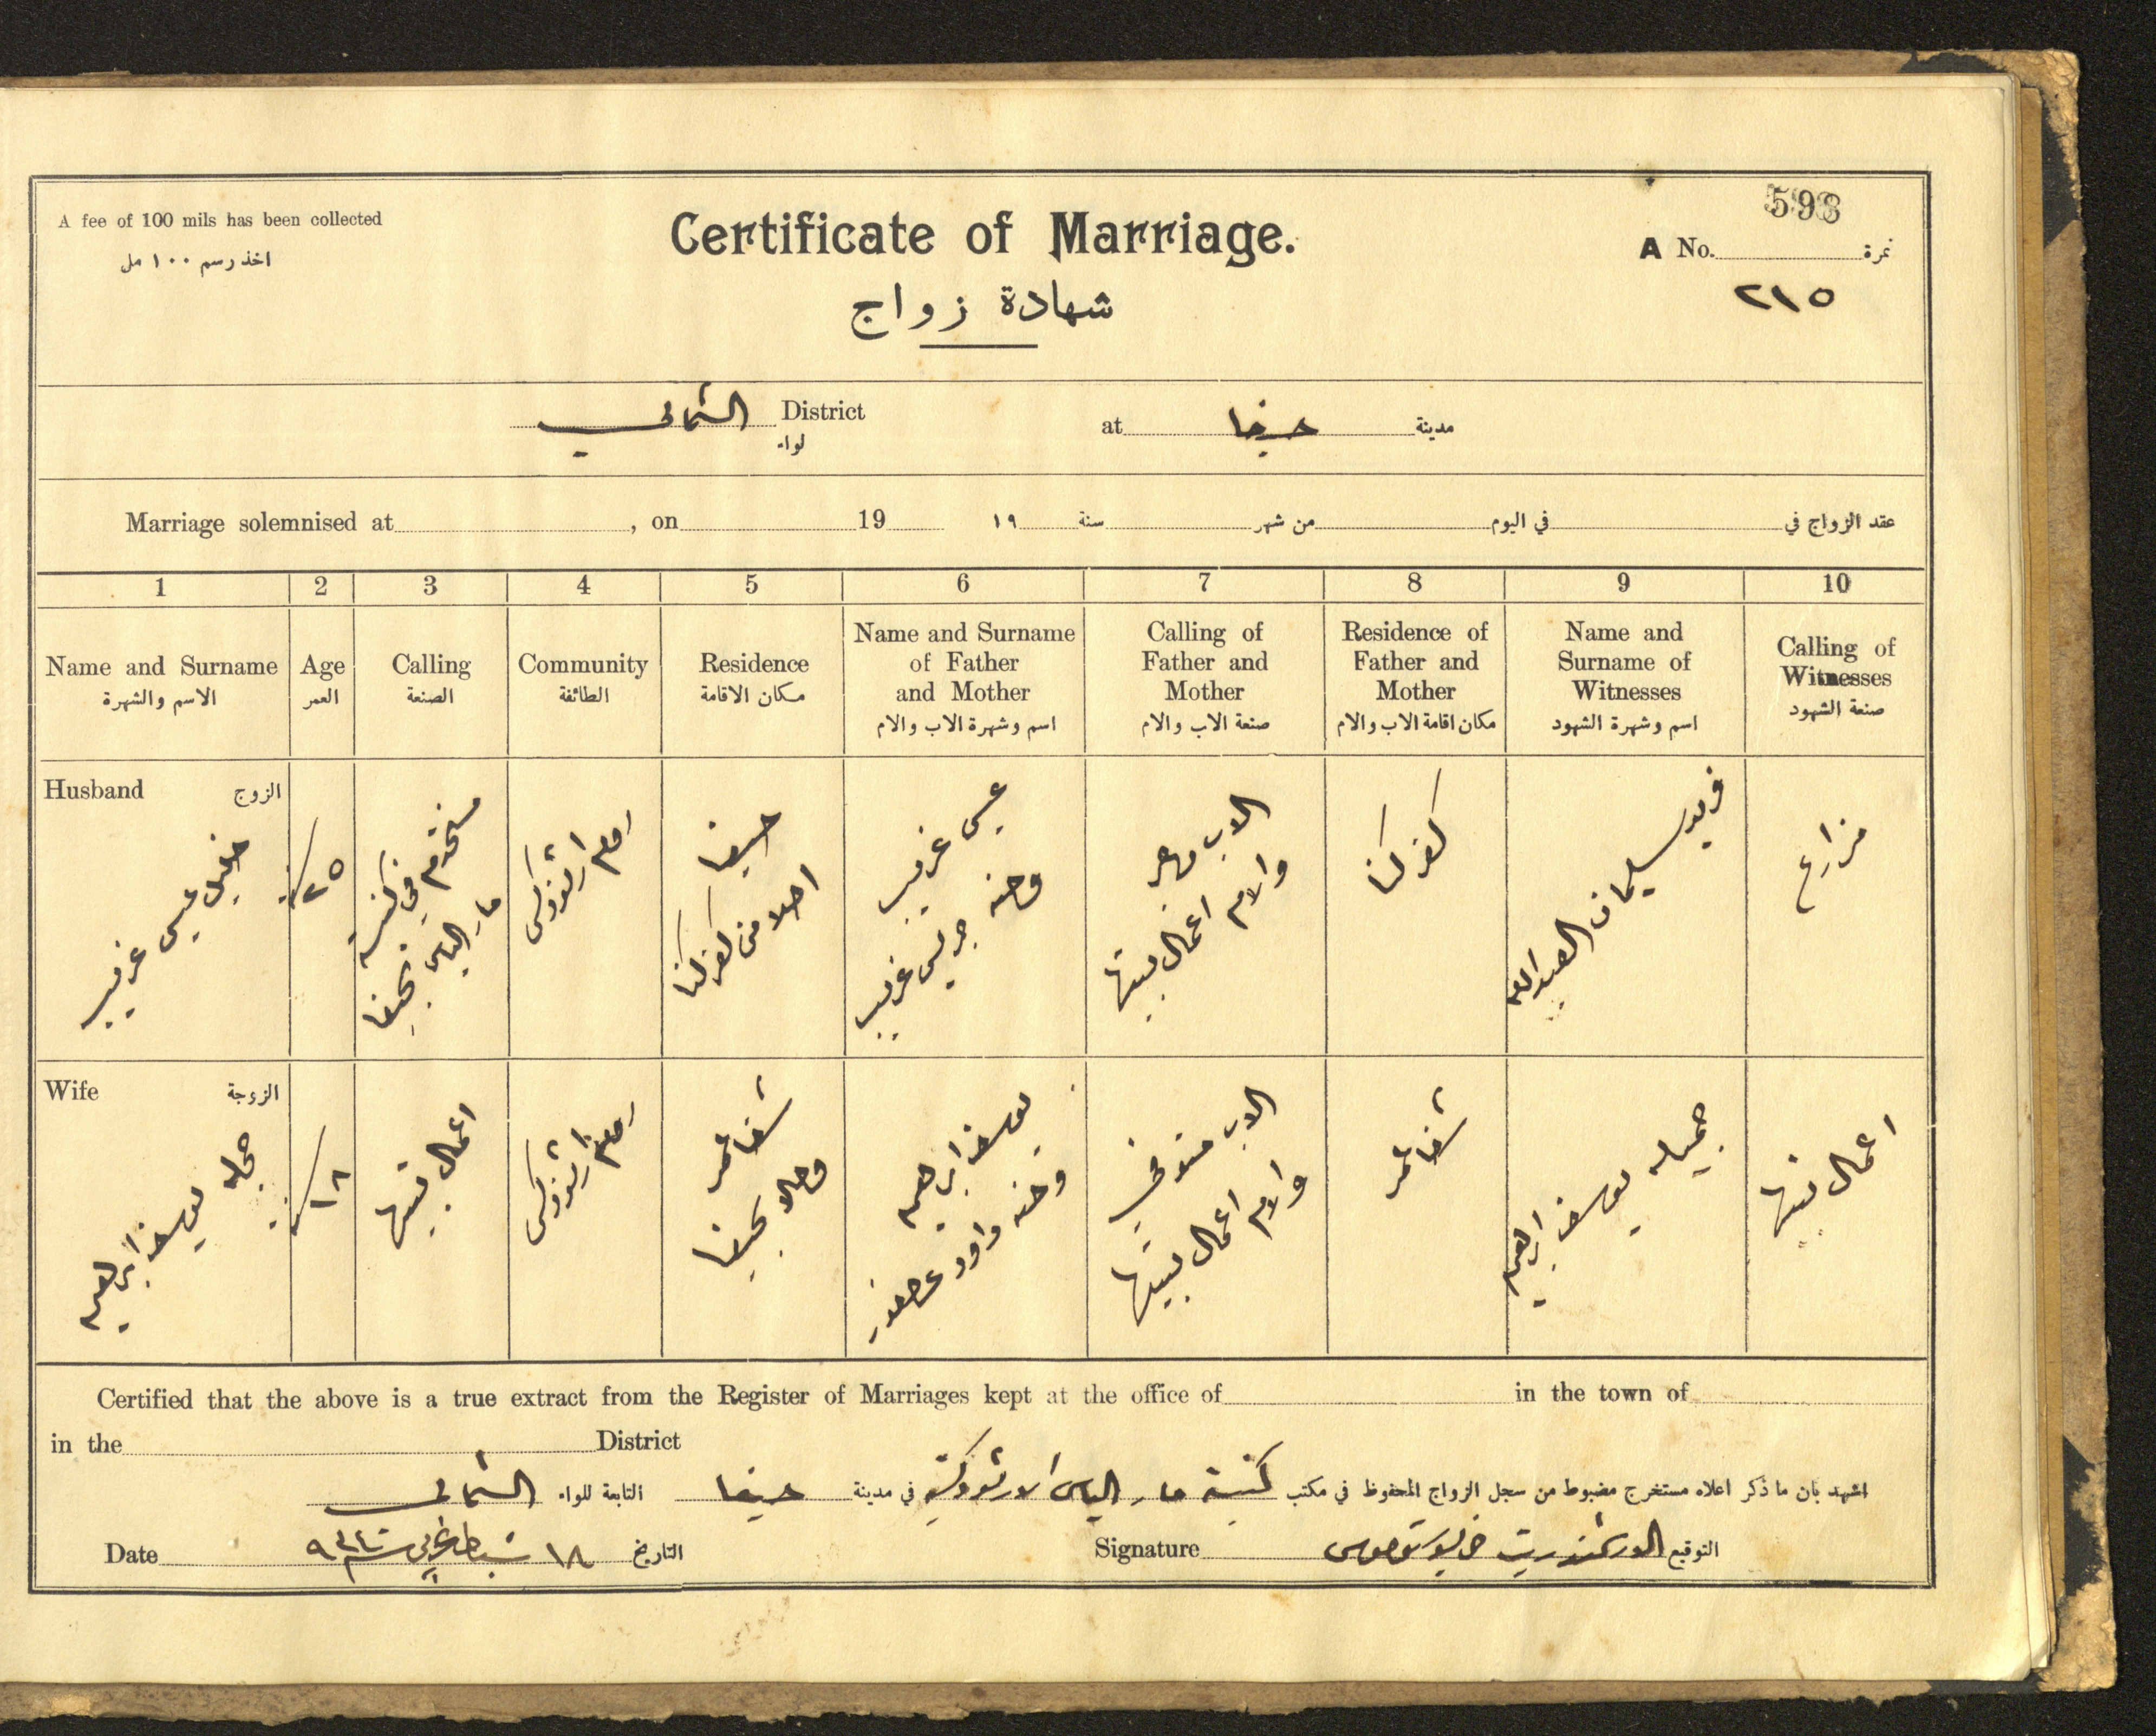 A fee of 100 mils has been collected
اخذ رسم ١٠٠ مل
Certificate of Marriage.
شهادة زواج
593
A No. نمرة
٢١٥
الشمالي District
لواء
at حيفا مدينة
Marriage solemnised at , on 19
عقد الزواج في في اليوم من شهر سنة ١٩
1 2 3 4 5 6 7 8 9 10
Name and Surname
الاسم والشهرة
Age
العمر
Calling
الصنعة
Community
الطائفة
Residence
مكان الاقامة
Name and Surname
of Father
and Mother
اسم وشهرة الاب والام
Calling of
Father and
Mother
صنعة الاب والام
Residence of
Father and
Mother
مكان اقامة الاب والام
Name and
Surname of
Witnesses
اسم وشهرة الشهود
Calling of
Witnesses
صنعة الشهود
Husband الزوج
خليل عيسى غريب
٢٥
مستخدم في كنيسة
مار الياس بحيفا
روم ارثوذكس
حيفا
اصلا من كفركنا
عيسى غريب
وحنه جريس غريب
الاب
والام اعمال بيتها
كفركنا
فريد سليمان العبدالله
مزارع
Wife الزوجة
يوسف ابراهيم
١٨
اعمال بيتها
روم ارثوذكس
شفاعمر
وحالا بحيفا
يوسف ابراهيم
وحنه داود عصفور
الاب متوفي
والام اعمال بيتها
شفاعمر
جميله يوسف ابراهيم
اعمال بيتها
Certified that the above is a true extract from the Register of Marriages kept at the office of in the town of
in the District
اشهد بان ما ذكر اعلاه مستخرج مضبوط من سجل الزواج المحفوظ في مكتب كنيسة مار الياس الارثوذكسية في مدينة حيفا التابعة للواء الشمالي
Date ١٨ شباط غربي سنة التاريخ
Signature التوقيع